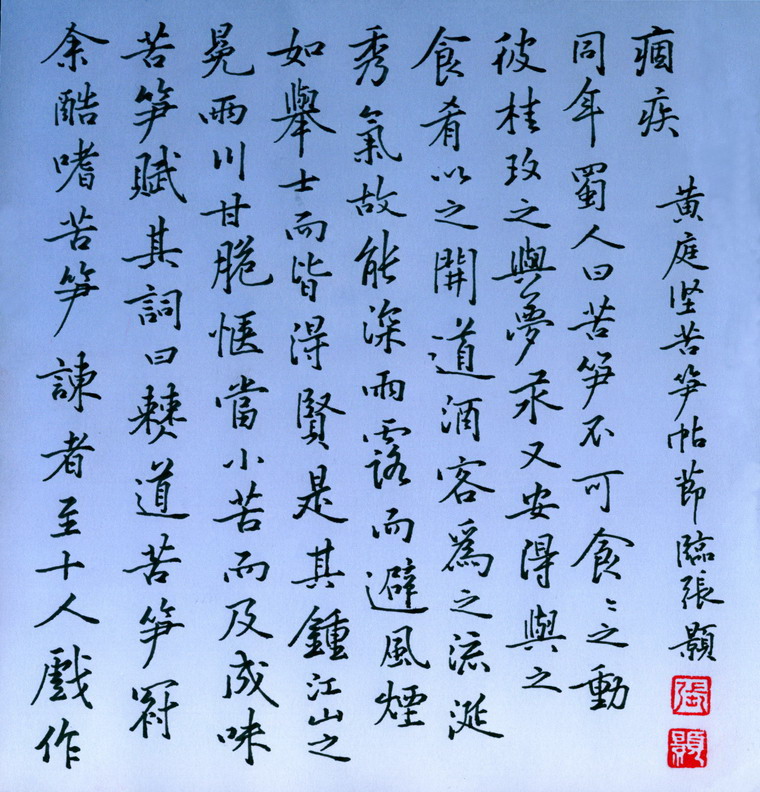 余酷嗜苦笋諫者至十人戲作
苦笋賦其詞曰僰道苦笋冠
冕兩川甘脆愜當小苦而及成味
如舉士而皆得賢是其鍾江山之
秀氣故能深雨露而避風煙
食肴以之開道酒客爲之流涎
彼桂玫之與夢汞又安得與之
同年蜀人曰苦笋不可食〻之動
痼疾
黄庭坚苦笋帖節臨張顥
張
顥